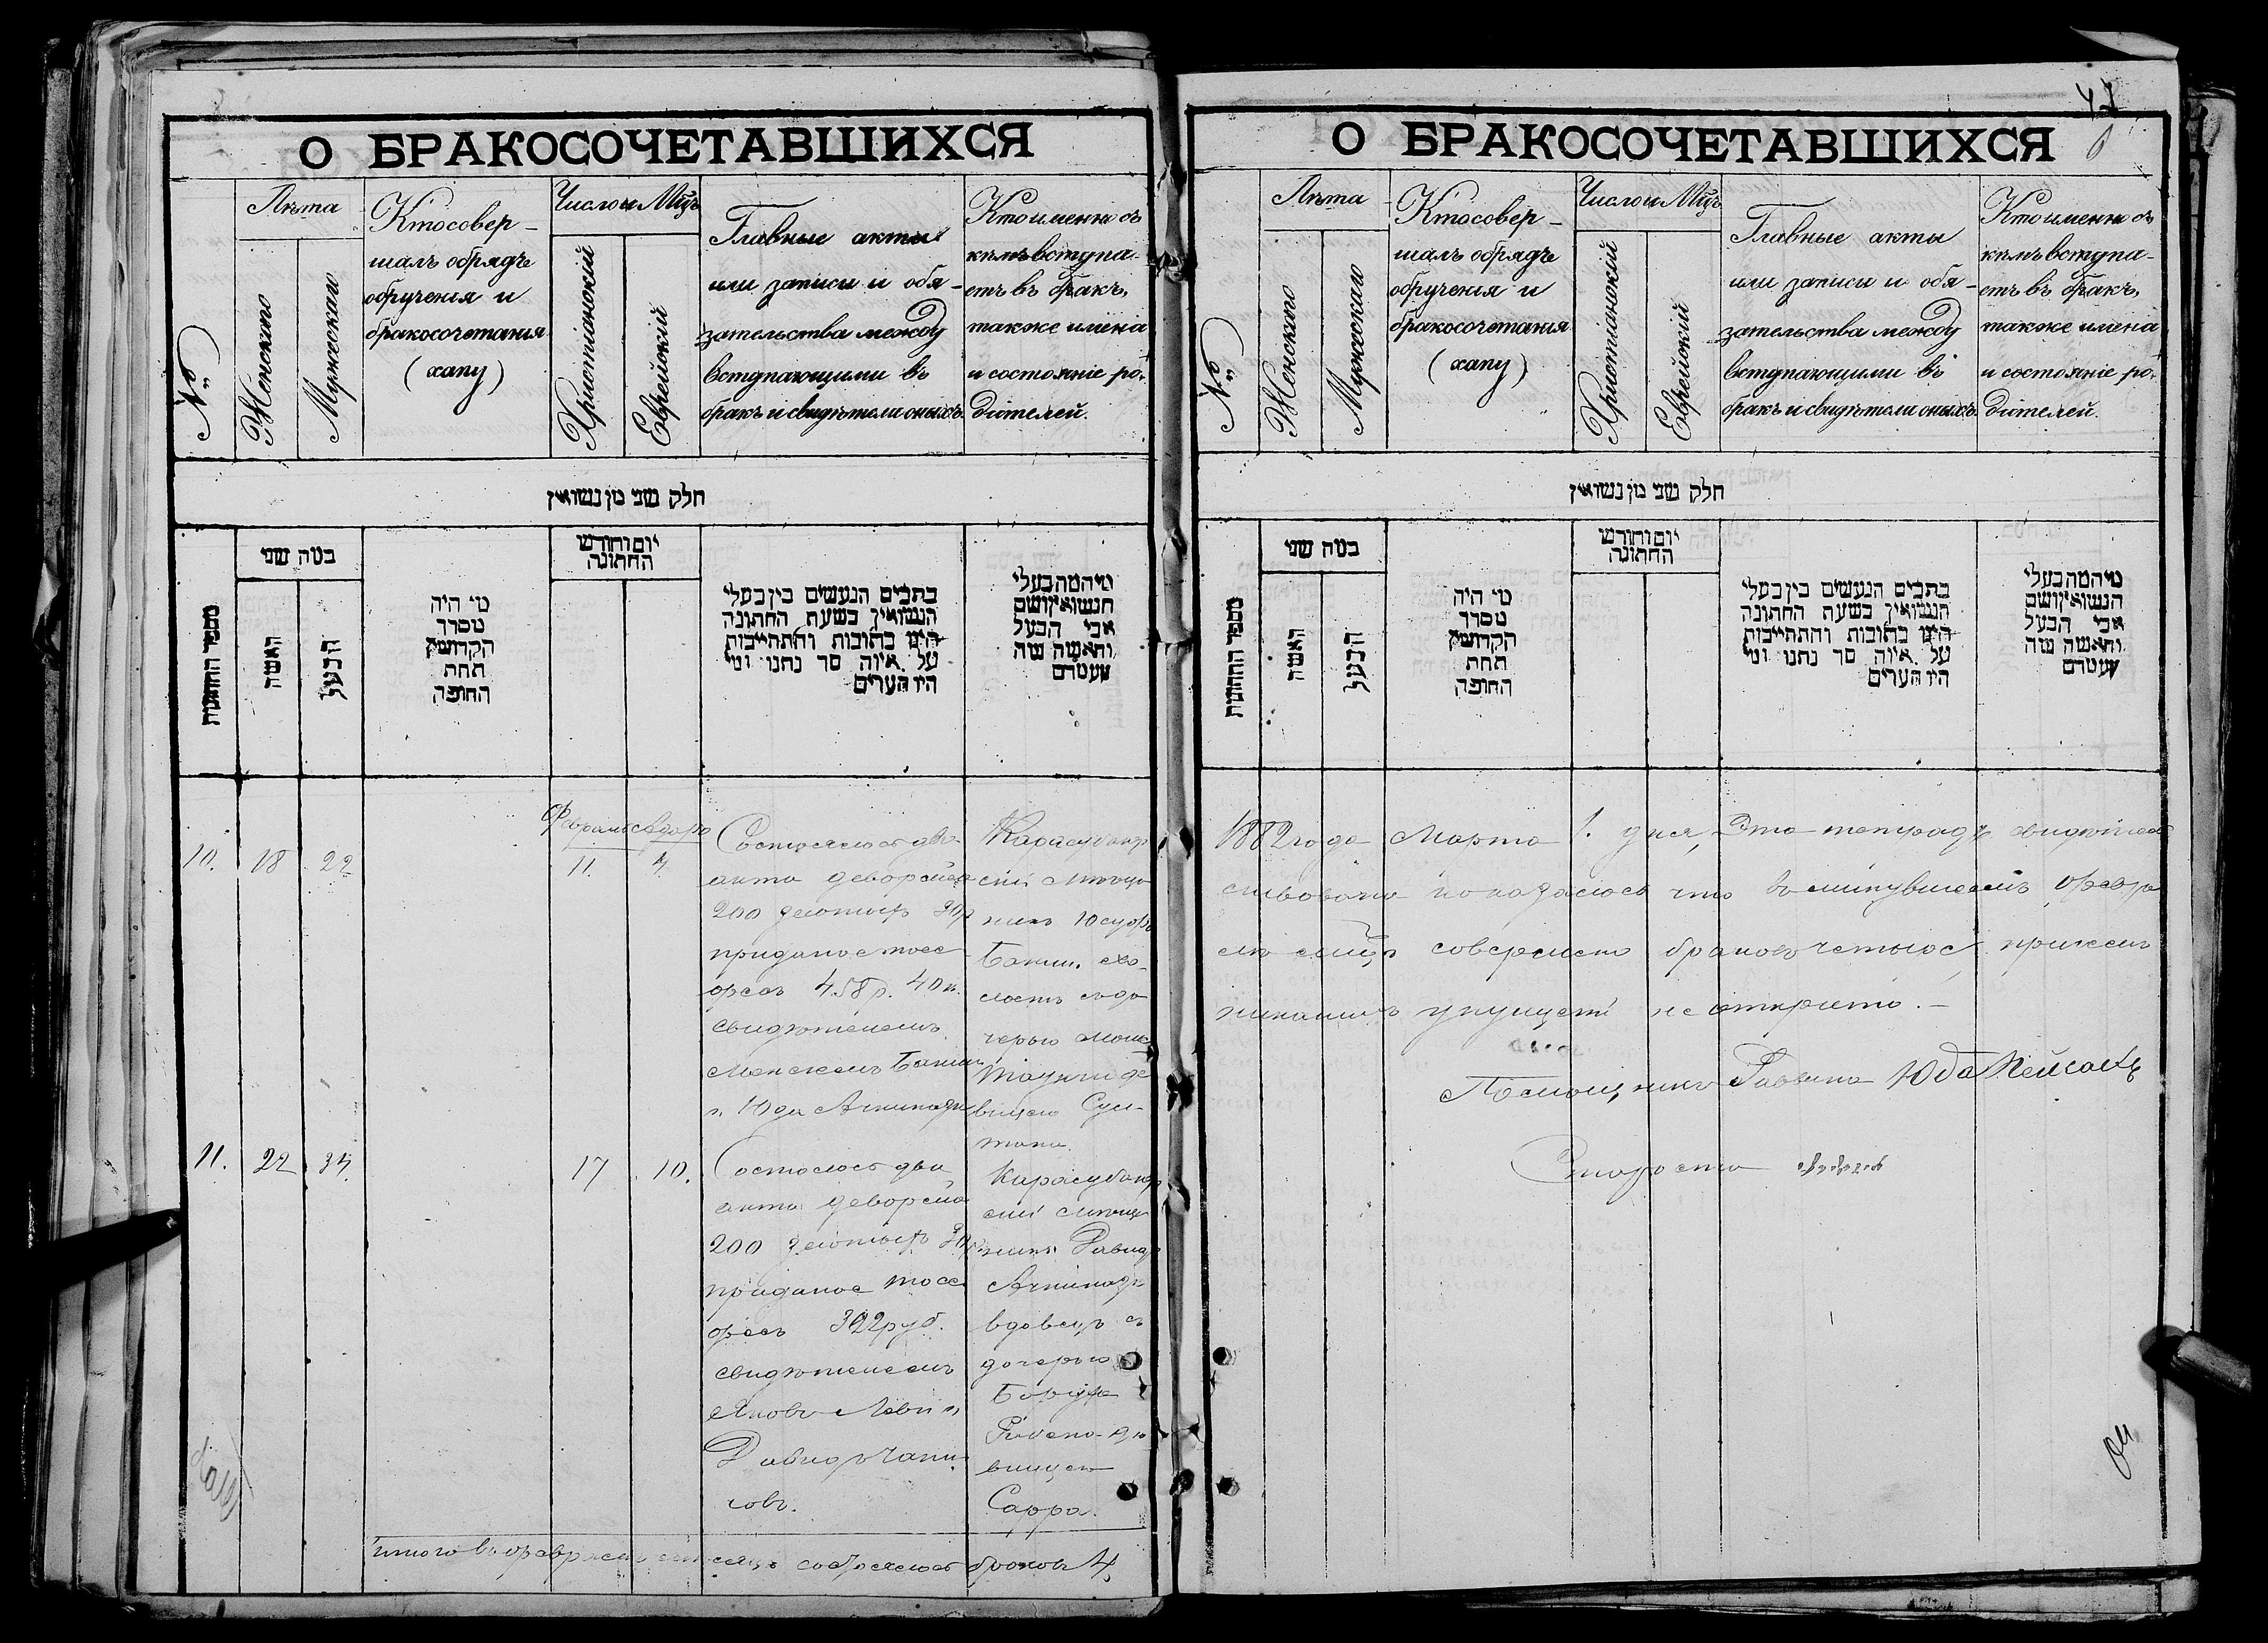 47
О БРАКОСОЧЕТАВШИХСЯ
№
Лѣта
Женскаго
Мужескаго
Кто совер-
шалъ обрядъ
обрученія и
бракосочетанія
(хапу)
Число и Мцъ
Христіанскій
Еврейскій
Главные акты
или записи и обя-
зательства между
вступающими въ
бракъ и свидѣтели оныхъ.
Кто именно съ
кѣмъ вступа-
етъ въ бракъ,
также имена
и состояніе ро-
дителей.
חלק שני מן נשואין
מספר החתונות
כמה שני
האשה
הבעל
מי היה
מסדר
הקדושין
תחת
החופה
יום וחודש
החתונה
כתבים הנעשים בין בעלי
הנשואין בשעת החתונה
היינו כתובות והתחייבות
על איזה סך נתנו ומי
היו הערים
מי המה בעלי
הנשואין ושם
אבי הבעל
והאשה ומה
מעמדם
10.
18
22
Февраль Адаръ
11.
4.
Состоялось два
акта деворейса
200 зелотыхъ 30 р
приданое тосе
фесъ 458 р. 40 к.
свидѣтелемъ
Бакши
и Юда Ачкинази
Карасубазар
скій мѣща
нинъ Юсуфъ
Бакши. хо-
лостъ съ до
черью
де
вицею Сул-
тана.
11.
22
34
17
10.
Состоялось два
акта деворейса
200 зелотыхъ 30 р
приданое тосе
фесъ 322 руб.
свидѣтелемъ
Яковъ Леви и
Давидъ Чапи
човъ.
Карасубазар
скій мѣща
нинъ Давидъ
Ачкинази
вдовецъ съ
дочерью
Борухъ
дѣ
вицею
Сарра.
итого въ февралѣ мѣсяцѣ совершилось браковъ 4
О БРАКОСОЧЕТАВШИХСЯ
№
Лѣта
Женскаго
Мужескаго
Кто совер-
шалъ обрядъ
обрученія и
бракосочетанія
(хапу)
Число и Мцъ
Христіанскій
Еврейскій
Главные акты
или записи и обя-
зательства между
вступающими въ
бракъ и свидѣтели оныхъ.
Кто именно съ
кѣмъ вступа-
етъ въ бракъ,
также имена
и состояніе ро-
дителей.
חלק שני מן נשואין
מספר החתונות
כמה שני
האשה
הבעל
מי היה
מסדר
הקדושין
תחת
החופה
יום וחודש
החתונה
כתבים הנעשים בין בעלי
הנשואין בשעת החתונה
היינו כתובות והתחייבות
על איזה סך נתנו ומי
היו הערים
מי המה בעלי
הנשואין ושם
אבי הבעל
והאשה ומה
מעמדם
1882 года Марта 1. дня, Эта тетрадь свидѣтель
ствована показалось что въ минувшемъ февра
лѣ мцѣ совершено браковъ четыре, причемъ
никакихъ упущеній не открыто.-
Помощникъ Раввина Юда Пейсахъ
Староста